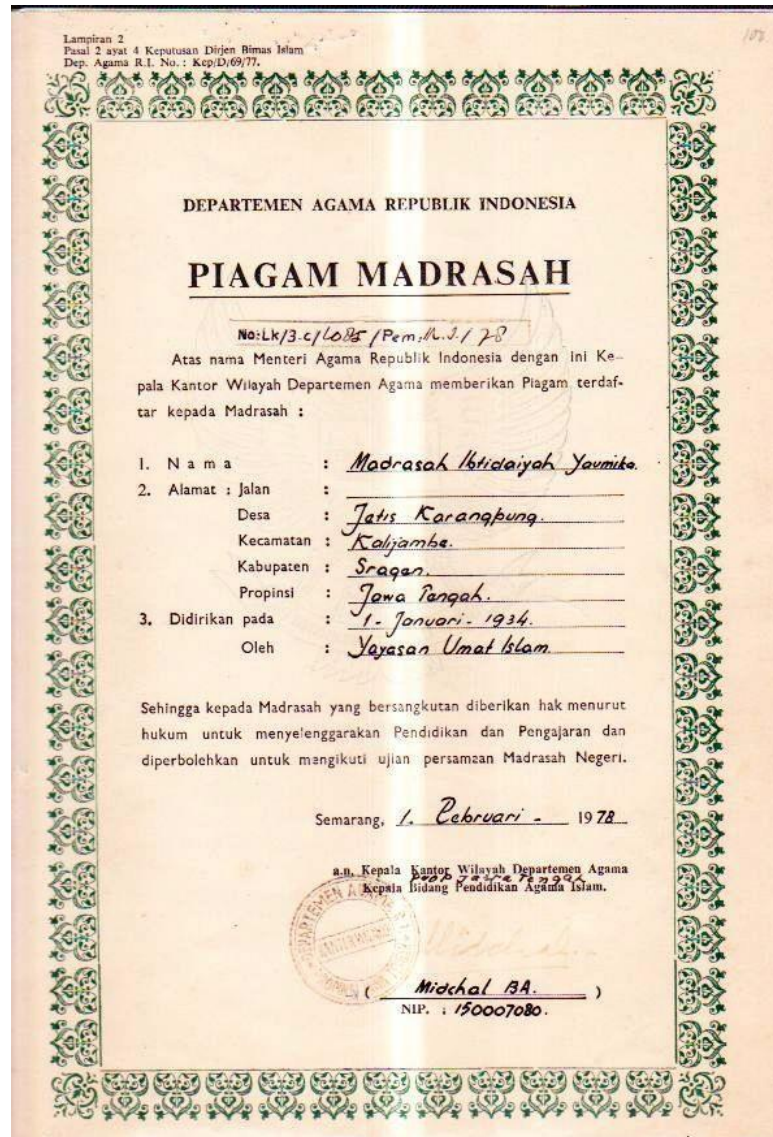 Lampiran 2
Pasal 2 ayat 4 Keputusan Dirjen Bimas Islam
Dep. Agama R.I. No. : Kep/D/69/77.
DEPARTEMEN AGAMA REPUBLIK INDONESIA
PIAGAM MADRASAH
No: Lk/3.c/ /Pem. /78
Atas nama Menteri Agama Republik Indonesia dengan ini Ke-
pala Kantor Wilayah Departemen Agama memberikan Piagam terdaf-
tar kepada Madrasah :
1. Nama : Madrasah Ibtidaiyah Yaumika.
2. Alamat : Jalan :
Desa : Jetis Karangpung.
Kecamatan : Kalijambe.
Kabupaten : Sragen.
Propinsi : Jawa Tengah.
3. Didirikan pada : 1 - Januari - 1934.
Oleh : Yayasan Umat Islam.
Sehingga kepada Madrasah yang bersangkutan diberikan hak menurut
hukum untuk menyelenggarakan Pendidikan dan Pengajaran dan
diperbolehkan untuk mengikuti ujian persamaan Madrasah Negeri.
Semarang, 1. Pebruari - 1978
a.n. Kepala Kantor Wilayah Departemen Agama
Prop Jawa Tengah
Kepala Bidang Pendidikan Agama Islam.
( Midchal BA. )
NIP. : 150007080.